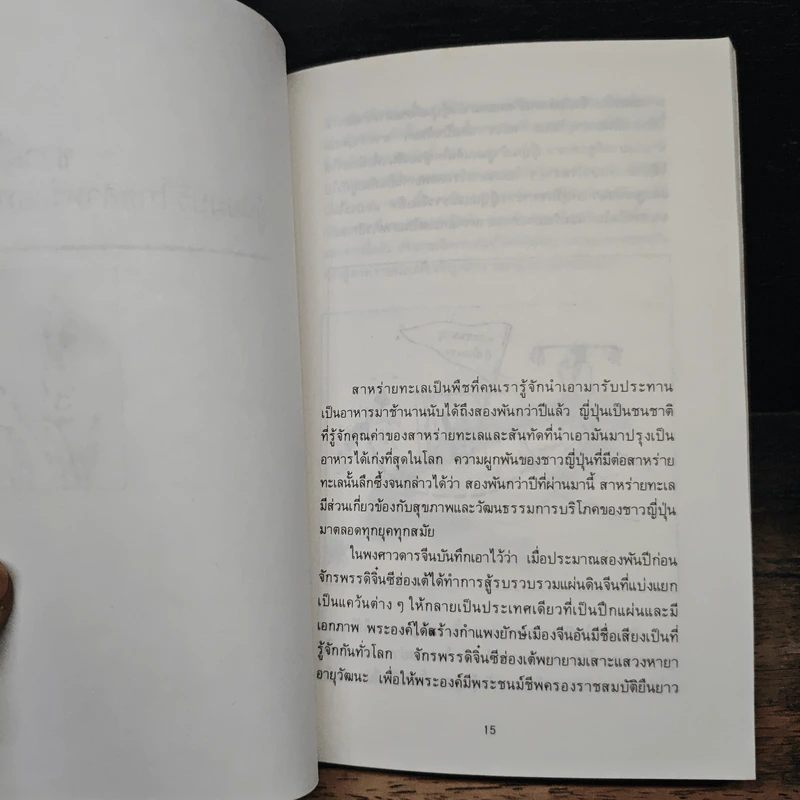 สาหร่ายทะเลเป็นพืชที่คนเรารู้จักนำเอามารับประทาน
เป็นอาหารมาช้านานนับได้ถึงสองพันกว่าปีแล้ว ญี่ปุ่นเป็นชนชาติ
ที่รู้จักคุณค่าของสาหร่ายทะเลและสันทัดที่นำเอามันมาปรุงเป็น
อาหารได้เก่งที่สุดในโลก ความผูกพันของชาวญี่ปุ่นที่มีต่อสาหร่าย
ทะเลนั้นลึกซึ้งจนกล่าวได้ว่า สองพันกว่าปีที่ผ่านมานี้ สาหร่ายทะเล
มีส่วนเกี่ยวข้องกับสุขภาพและวัฒนธรรมการบริโภคของชาวญี่ปุ่น
มาตลอดทุกยุคทุกสมัย
ในพงศาวดารจีนบันทึกเอาไว้ว่า เมื่อประมาณสองพันปีก่อน
จักรพรรดิจิ๋นซีฮ่องเต้ได้ทำการสู้รบรวบรวมแผ่นดินจีนที่แบ่งแยก
เป็นแคว้นต่าง ๆ ให้กลายเป็นประเทศเดียวที่เป็นปึกแผ่นและมี
เอกภาพ พระองค์ได้สร้างกำแพงยักษ์เมืองจีนอันมีชื่อเสียงเป็นที่
รู้จักกันทั่วโลก จักรพรรดิจิ๋นซีฮ่องเต้พยายามเสาะแสวงหายา
อายุวัฒนะ เพื่อให้พระองค์มีพระชนม์ชีพครองราชสมบัติยืนยาว
15